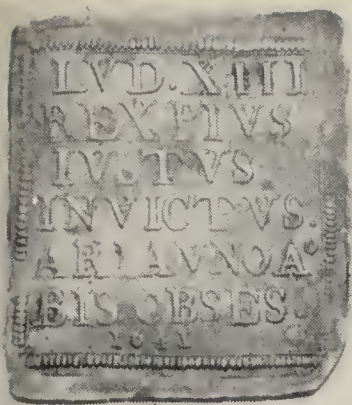 LVD.XIII
REX PIVS
IVSTVS.
INVICTVS.
ARIAVNOA°
BIS OBSES.
1641